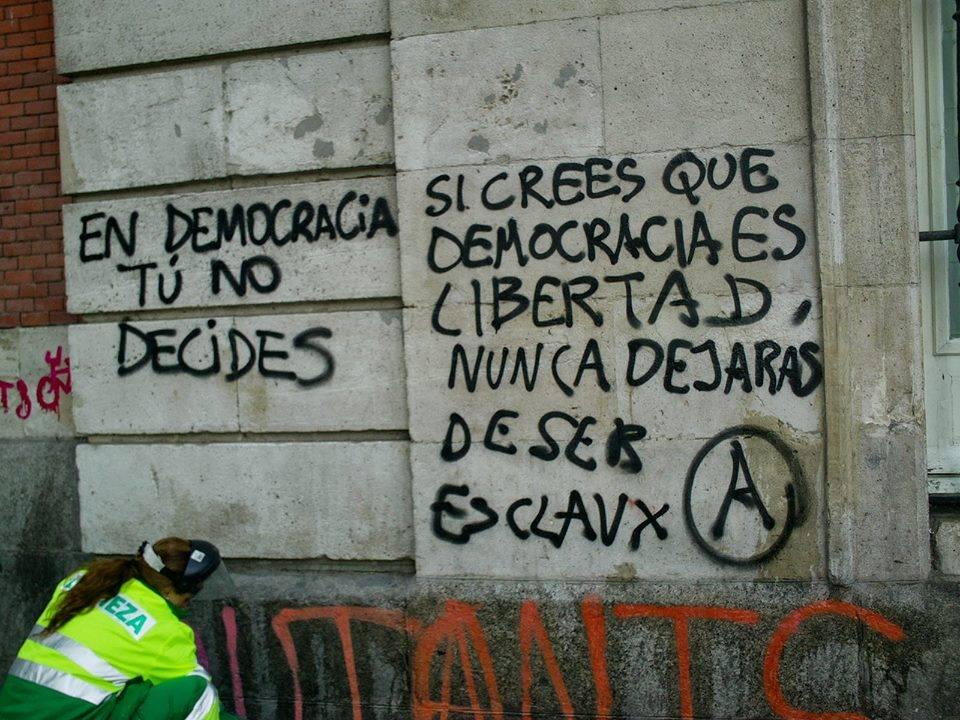 EN DEMOCRACiA
TÚ NO
DECiDES
SI CREES QUE
DEMOCRACIA ES
LIBERTAD,
NUNCA DEJARAS
DE SER
ESCLAVX
A
EZA